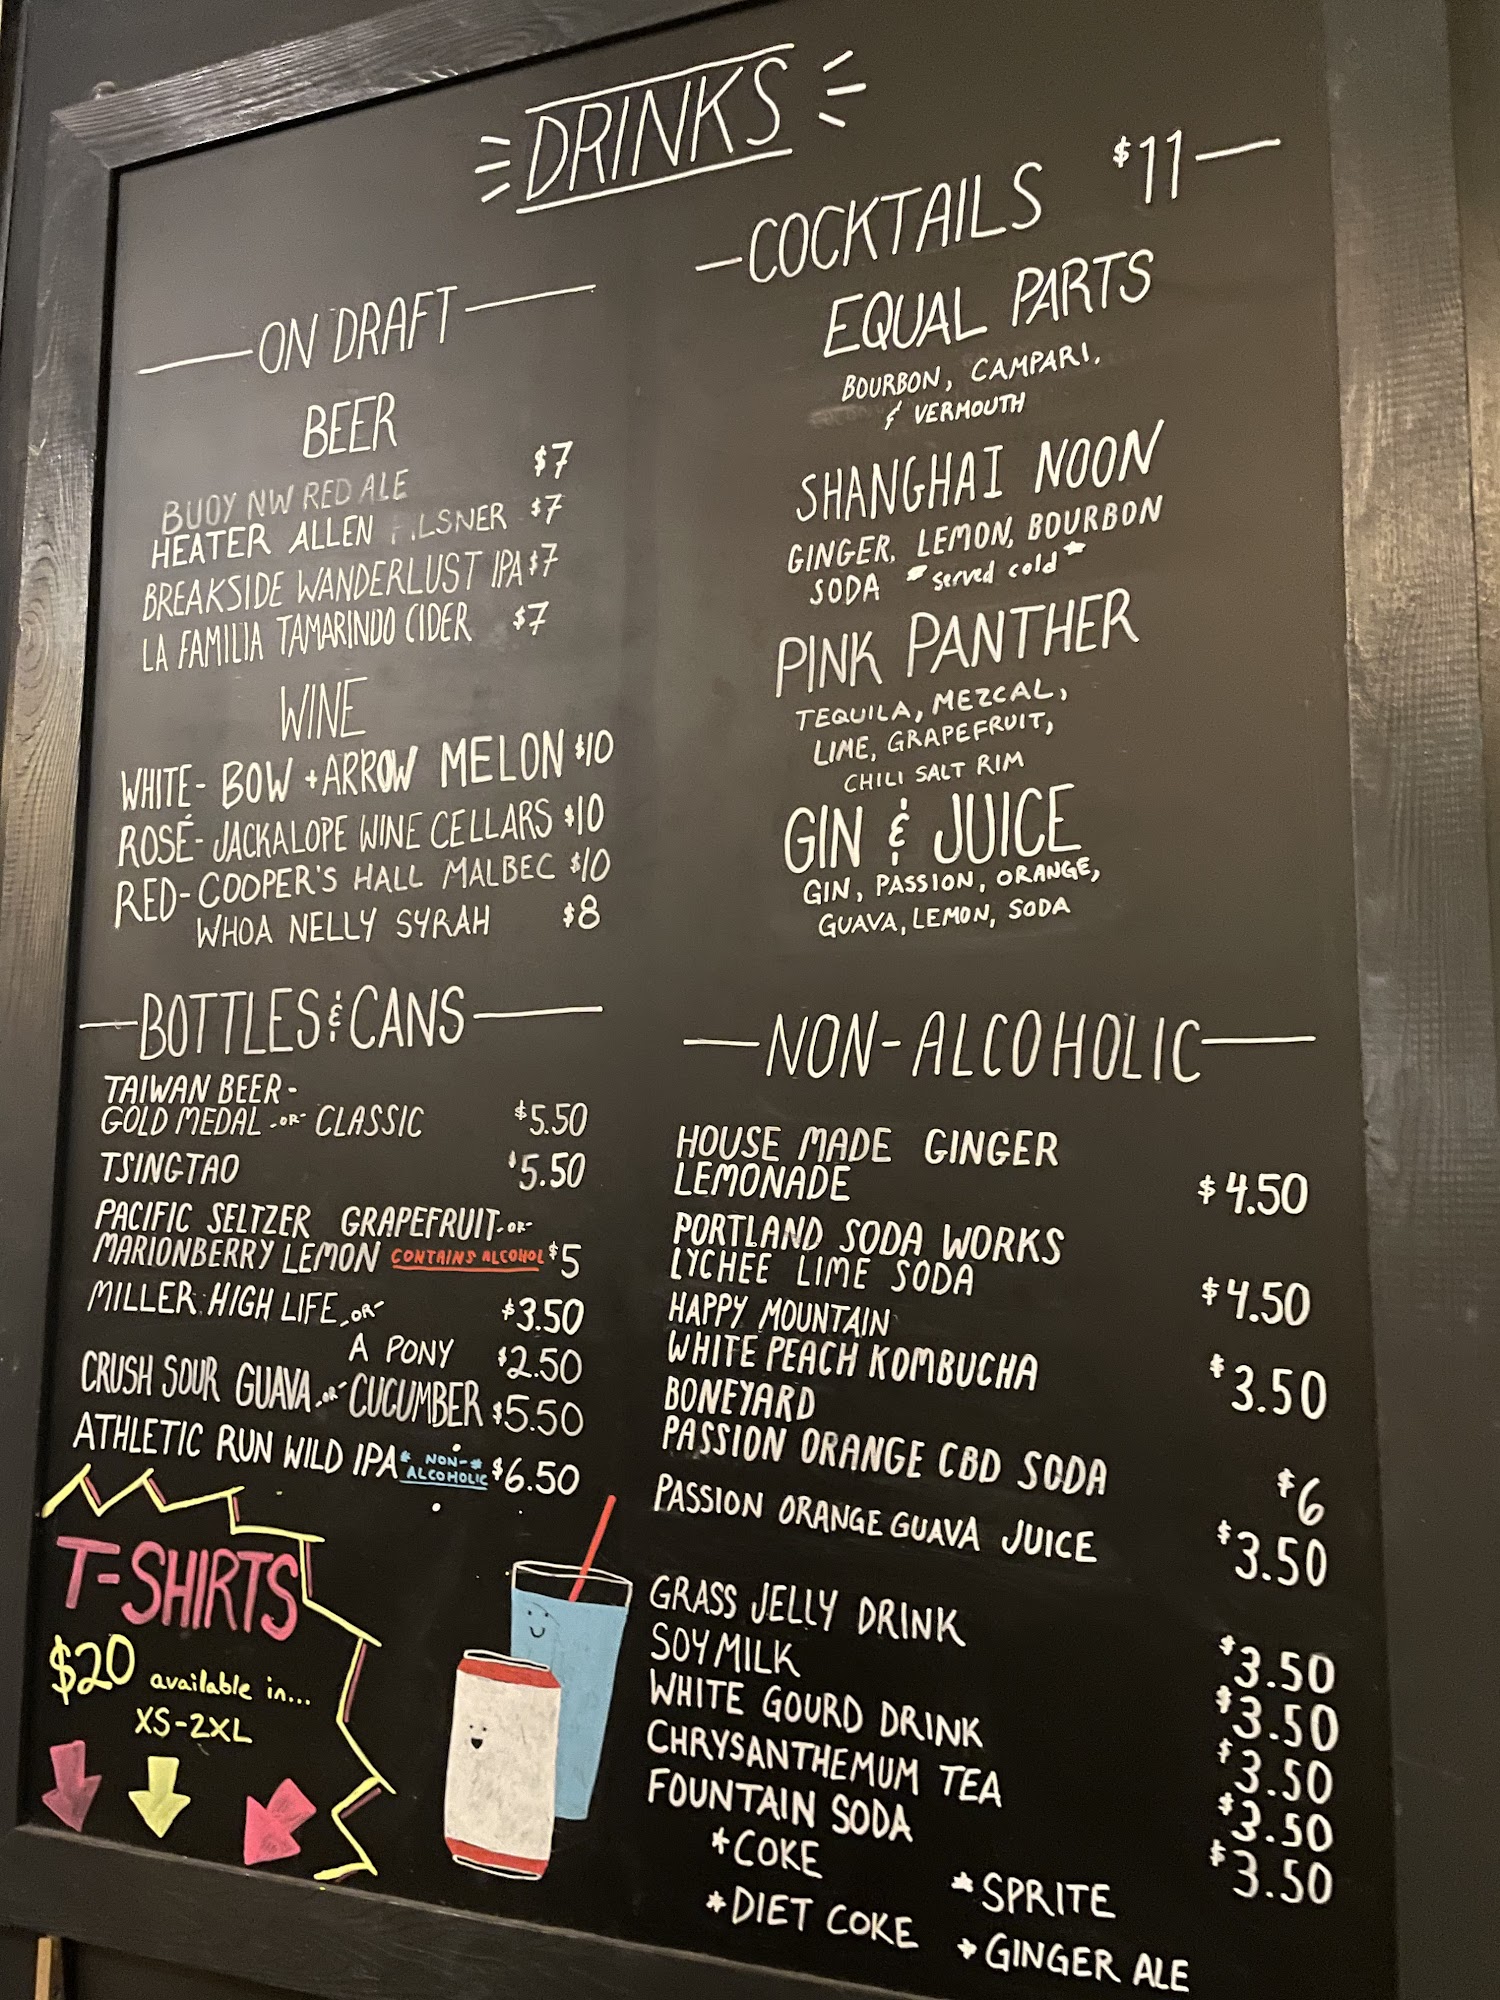 DRINKS
ON DRAFT
BEER
BUOY NW RED ALE $7
HEATER ALLEN PILSNER $7
BREAKSIDE WANDERLUST IPA $7
LA FAMILIA TAMARINDO CIDER $7
WINE
WHITE- BOW + ARROW MELON $10
ROSÉ- JACKALOPE WINE CELLARS $10
RED- COOPER'S HALL MALBEC $10
WHOA NELLY SYRAH $8
BOTTLES & CANS
TAIWAN BEER-
GOLD MEDAL -OR- CLASSIC $5.50
TSINGTAO $5.50
PACIFIC SELTZER GRAPEFRUIT -OR-
MARIONBERRY LEMON CONTAINS ALCOHOL $5
MILLER HIGH LIFE -OR- $3.50
A PONY $2.50
CRUSH SOUR GUAVA -OR- CUCUMBER $5.50
ATHLETIC RUN WILD IPA * NON- *
ALCOHOLIC $6.50
T-SHIRTS
$20 available in...
XS-2XL
COCKTAILS $11
EQUAL PARTS
BOURBON, CAMPARI,
& VERMOUTH
SHANGHAI NOON
GINGER, LEMON, BOURBON
SODA *served cold*
PINK PANTHER
TEQUILA, MEZCAL,
LIME, GRAPEFRUIT,
CHILI SALT RIM
GIN & JUICE
GIN, PASSION, ORANGE,
GUAVA, LEMON, SODA
NON-ALCOHOLIC
HOUSE MADE GINGER
LEMONADE $4.50
PORTLAND SODA WORKS
LYCHEE LIME SODA $4.50
HAPPY MOUNTAIN
WHITE PEACH KOMBUCHA $3.50
BONEYARD
PASSION ORANGE CBD SODA $6
PASSION ORANGE GUAVA JUICE $3.50
GRASS JELLY DRINK $3.50
SOY MILK $3.50
WHITE GOURD DRINK $3.50
CHRYSANTHEMUM TEA $3.50
FOUNTAIN SODA $3.50
*COKE *SPRITE
*DIET COKE *GINGER ALE